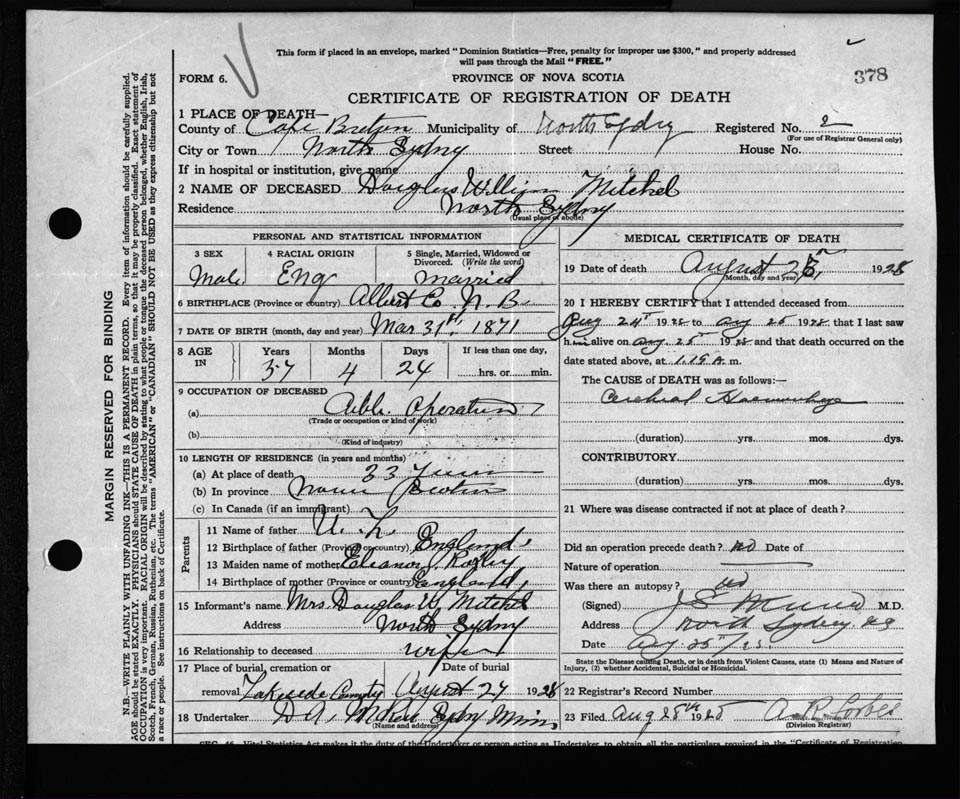 This form if placed in an envelope, marked "Dominion Statistics—Free, penalty for improper use $300," and properly addressed
will pass through the Mail "FREE."
378
FORM 6.
PROVINCE OF NOVA SCOTIA
CERTIFICATE OF REGISTRATION OF DEATH
1 PLACE OF DEATH—
County of Cape Breton Municipality of North Sydney Registered No. 2
(For use of Registrar General only)
City or Town North Sydney Street House No.
If in hospital or institution, give name
2 NAME OF DECEASED Douglas William Mitchel
Residence North Sydney
(Usual place of abode)
PERSONAL AND STATISTICAL INFORMATION
3 SEX 4 RACIAL ORIGIN 5 Single, Married, Widowed or
Divorced. (Write the word)
Male Eng married
6 BIRTHPLACE (Province or country) Albert Co N. B.
7 DATE OF BIRTH (month, day and year) Mar 31st, 1871
8 AGE IN Years Months Days If less than one day,
57 4 24 hrs. or min.
9 OCCUPATION OF DECEASED
(a) Cable Operator
(Trade or occupation or kind of work)
(b)
(Kind of industry)
10 LENGTH OF RESIDENCE (in years and months)
(a) At place of death 33 Years
(b) In province Nova Scotia
(c) In Canada (if an immigrant)
Parents
11 Name of father
12 Birthplace of father (Province or country) England
13 Maiden name of mother Eleanor
14 Birthplace of mother (Province or country) England
15 Informant's name Mrs. Douglas W Mitchel
Address North Sydney
16 Relationship to deceased wife
17 Place of burial, cremation or Date of burial
removal Lakeside August 27 1928
18 Undertaker D A, Sydney Mines
(Name and address)
MEDICAL CERTIFICATE OF DEATH
19 Date of death August 25, 1928
(Month, day and year)
20 I HEREBY CERTIFY that I attended deceased from
Aug 24th 1928 to Aug 25 1928 that I last saw
him alive on Aug 25th 1928 and that death occurred on the
date stated above, at 1.15 A m.
The CAUSE OF DEATH was as follows:—
Cerebral Haemorrhage
(duration) yrs. mos. dys.
CONTRIBUTORY
(duration) yrs. mos. dys.
21 Where was disease contracted if not at place of death?
Did an operation precede death? no Date of
Nature of operation
Was there an autopsy? no
(Signed) J S Munro M.D.
Address North Sydney NS
Date Aug 25th/28
State the Disease causing Death, or in death from Violent Causes, state (1) Means and Nature of
Injury, (2) whether Accidental, Suicidal or Homicidal.
22 Registrar's Record Number
23 Filed Aug 25th 1925 A. R. Forbes
(Division Registrar)
MARGIN RESERVED FOR BINDING
N.B.—WRITE PLAINLY WITH UNFADING INK—THIS IS A PERMANENT RECORD. Every item of information should be carefully supplied.
AGE should be stated EXACTLY. PHYSICIANS should STATE CAUSE OF DEATH in plain terms, so that it may be properly classified. Exact statement of
OCCUPATION is very important. RACIAL ORIGIN will be described by stating to what people or tongue the deceased person belonged, whether English, Irish,
Scotch, French, German, Russian, Ruthenian, etc. The terms "AMERICAN" or "CANADIAN" SHOULD NOT BE USED as they express citizenship but not
a race or people. See instructions on back of Certificate.